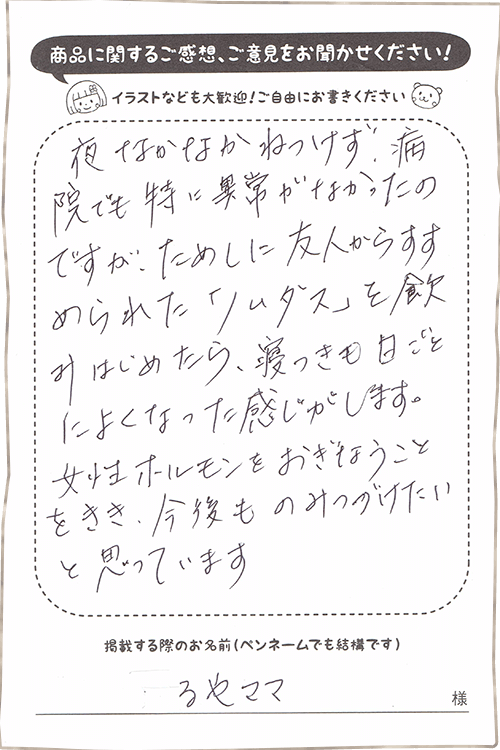 商品に関するご感想、ご意見をお聞かせください！
イラストなども大歓迎！ご自由にお書きください
夜なかなかねつけず、病
院でも特に異常がなかったの
ですが、ためしに友人からすす
められた「リムダス」を飲
みはじめたら、寝つきも日ごと
によくなった感じがします。
女性ホルモンをおぎなうこと
をきき、今後ものみつづけたい
と思っています
掲載する際のお名前（ペンネームでも結構です）
るやママ
様